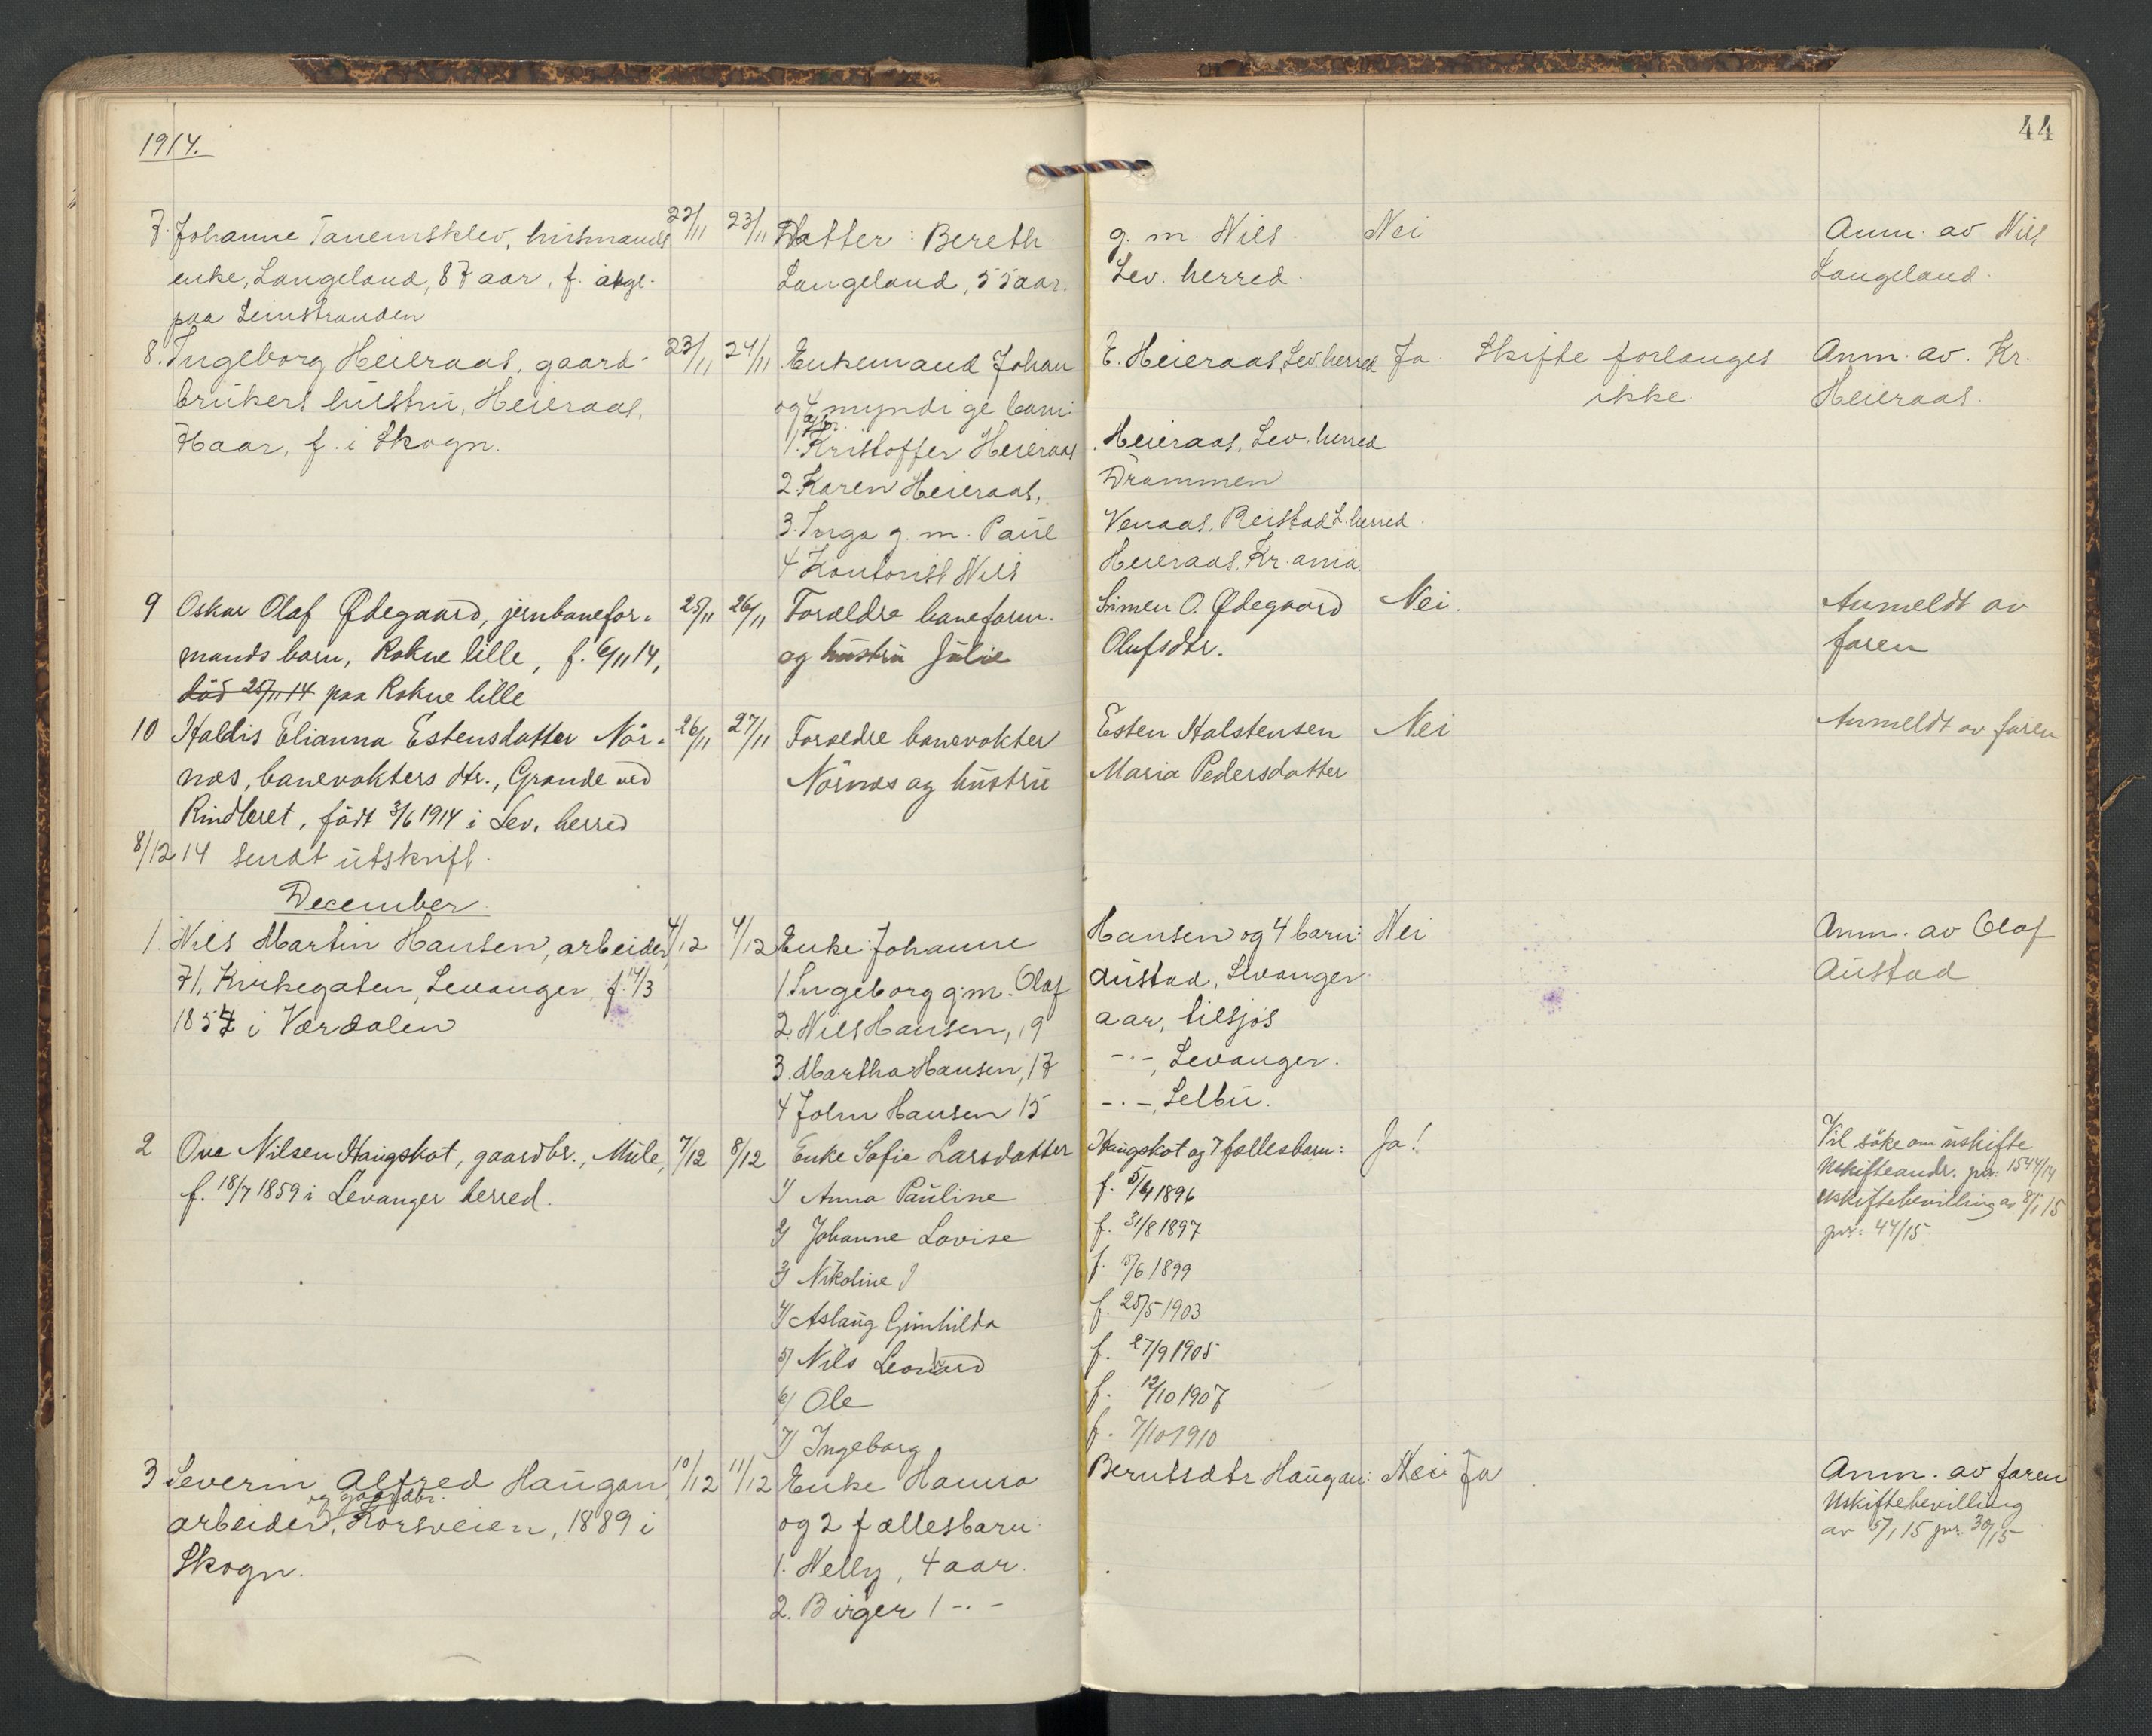 1914.
44
7. Johanne Tanemsklev, husmands 22/11 23/11 Datter: Bereth g. m. Nils Nei Anm. av Nils
enke, Langeland, 87 aar, f. Langeland, 55 aar. Lev. herred. Langeland.
paa Leinstranden
8. Ingeborg Heieraas, gaard- 23/11 24/11 Enkemand Johan E. Heieraas, Lev. herred Ja Skifte forlanges Anm. av. Kr.
brukers hustru, Heieraas, og 4 myndige barn: ikke. Heieraas.
aar, f. i Skogn. 1. Kristoffer Heieraas Heieraas, Lev. herred
2. Karen Heieraas, Drammen
3. Inga g. m. Paul Venaas, Reistad L. herred.
4. Kontorist Nils Heieraas, Kr.ania.
9 Oskar Olaf Ødegaard, jernbanefor- 25/11 26/11 Forældre baneform. Simen O. Ødegaard Nei. Anmeldt av
mands barn, Rokne lille, f. 6/11 14, og hustru Julie Olufsdtr. faren
död 25/11 14 paa Rokne lille
10 Haldis Elianna Estensdatter Nör- 26/11 27/11 Foraeldre banevokter Esten Halstensen Nei Anmeldt av faren
næs, banevokters dtr., Grande ved Nörnæs og hustru Maria Pedersdatter
Rindleret, födt 3/6 1914 i Lev. herred
8/12 14 sendt utskrift.
December.
1. Nils Martin Hansen, arbeider, 4/12 4/12 Enke Johanne Hansen og 4 barn: Nei Anm. av Olaf
71, Kirkegaten, Levanger, f. 14/3 1. Ingeborg g. m. Olaf Austad, Levanger Austad
1857 i Værdalen 2. Nils Hansen, 19 aar, tilsjøs
3. Martha Hansen, 17 -.-, Levanger.
4 John Hansen 15 -.-, Selbu.
2 Ove Nilsen Haugskot, gaardbr., Mule, 7/12 8/12 Enke Sofie Larsdatter Haugskot og 7 fællesbarn: Ja! Vil söke om uskifte
f. 18/7 1859 i Levanger herred. 1/ Anna Pauline f. 5/4 1896 Uskifteandr. pr: 1544/14
2/ Johanne Lovise f. 31/8 1897 Uskiftebevilling av 8/1 15
3/ Nikoline J f. 15/6 1899 44/15
4/ Aslaug Gunhilda f. 25/5 1903
5/ Nils Leonhard f. 27/9 1905
6/ Ole f. 12/10 1907
7/ Ingeborg f. 7/10 1910
3 Severin Alfred Haugan, 10/12 11/12 Enke Hanna Berntsdtr. Haugan: Nei Ja Anm. av faren
og gaardbr.
arbeider, Korsveien, 1889 i og 2 fællesbarn: Uskiftebevilling
Skogn. 1. Nelly, 4 aar. av 5/1 15 30/15
2. Birger 1 -.-